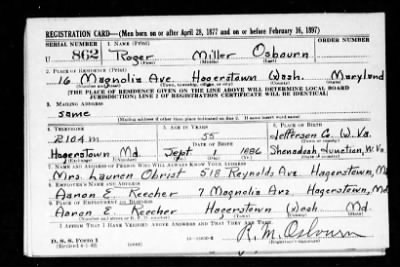 REGISTRATION CARD—(Men born on or after April 28, 1877 and on or before February 16, 1897)
SERIAL NUMBER 1. NAME (Print) ORDER NUMBER
U 862 Roger Miller Osbourn
(First) (Middle) (Last)
2. PLACE OF RESIDENCE (Print)
16 Magnolia Ave. Hagerstown Wash. Maryland
[THE PLACE OF RESIDENCE GIVEN ON THE LINE ABOVE WILL DETERMINE LOCAL BOARD
JURISDICTION; LINE 2 OF REGISTRATION CERTIFICATE WILL BE IDENTICAL]
3. MAILING ADDRESS
same
[Mailing address if other than place indicated on line 2. If same insert word same]
4. TELEPHONE 5. AGE IN YEARS 6. PLACE OF BIRTH
2104M 55 Jefferson Co. W. Va.
DATE OF BIRTH
Hagerstown Md. Sept 1886 Shenandoah Junction, W. Va
7. NAME AND ADDRESS OF PERSON WHO WILL ALWAYS KNOW YOUR ADDRESS
Mrs. Obrist 518 Reynolds Ave Hagerstown, Md.
8. EMPLOYER'S NAME AND ADDRESS
Aaron E. Keecher 7 Magnolia Ave. Hagerstown, Md.
9. PLACE OF EMPLOYMENT OR BUSINESS
Aaron E. Keecher Hagerstown Wash Md.
I AFFIRM THAT I HAVE VERIFIED ABOVE ANSWERS AND THAT THEY ARE TRUE.
R. M. Osbourn
D. S. S. Form 1